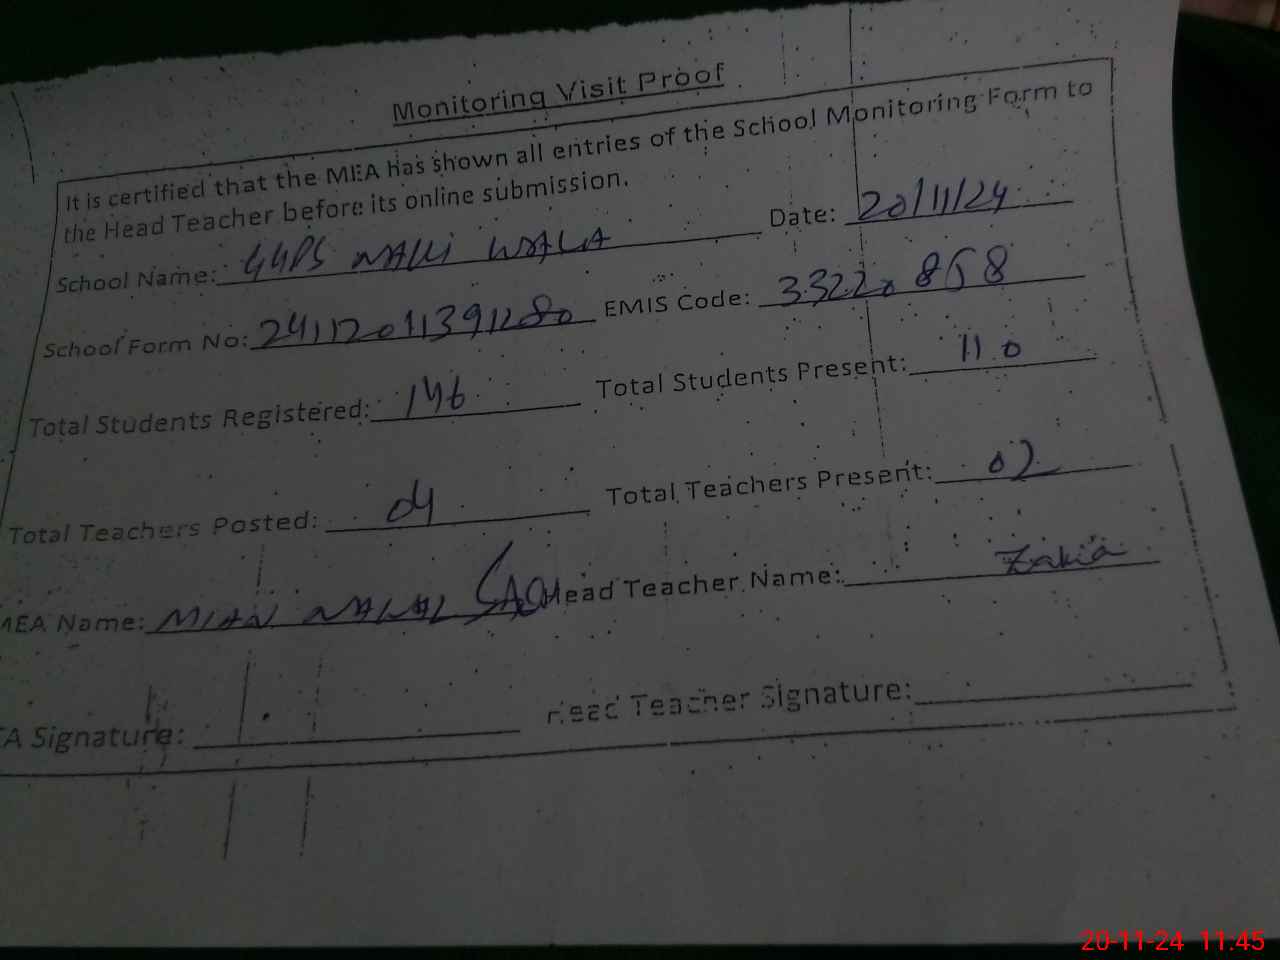 Monitoring Visit Proof
It is certified that the MEA has shown all entries of the School Monitoring Form to
the Head Teacher before its online submission.
School Name: GGPS MALLI WALA Date: 20/11/24
School Form No: 241120113911280 EMIS Code: 33220858
Total Students Registered: 146 Total Students Present: 110
Total Teachers Posted: 04 Total Teachers Present: 02
MEA Name: MIAN Head Teacher Name: Zakia
EA Signature: Head Teacher Signature:
20-11-24 11:45